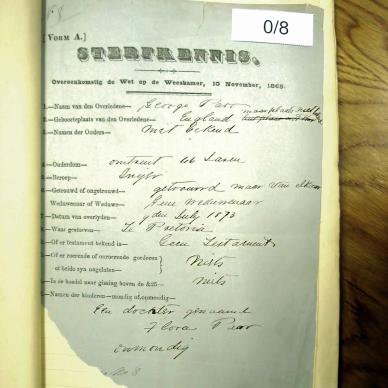 0/8
[VORM A.]
STERFKENNIS.
Overeenkomstig de Wet op de Weeskamer, 10 November, 1868.
1.—Naam van den Overledene— George Pear
2.—Geboorteplaats van den Overledene— England
3.—Namen der Ouders— Niet bekend
4.—Ouderdom— omtrent 46 Jaren
5.—Beroep—
6.—Getrouwd of ongetrouwd— getrouwd maar van
Weduwenaar of Weduwe— Geen Weduwenaar
7.—Datum van overlyden— den July 1873
8.—Waar gestorven— Te Pretoria
—Of er testament bekend is— Geen Testament
—Of er roerende of onroerende goederen Niets
of beide zyn nagelaten—
—Is de boedel naar gissing boven de £25— Niets
—Namen der kinderen—mondig of onmondig—
Een dochter genaamd
Flora Pear
onmondig
No 8